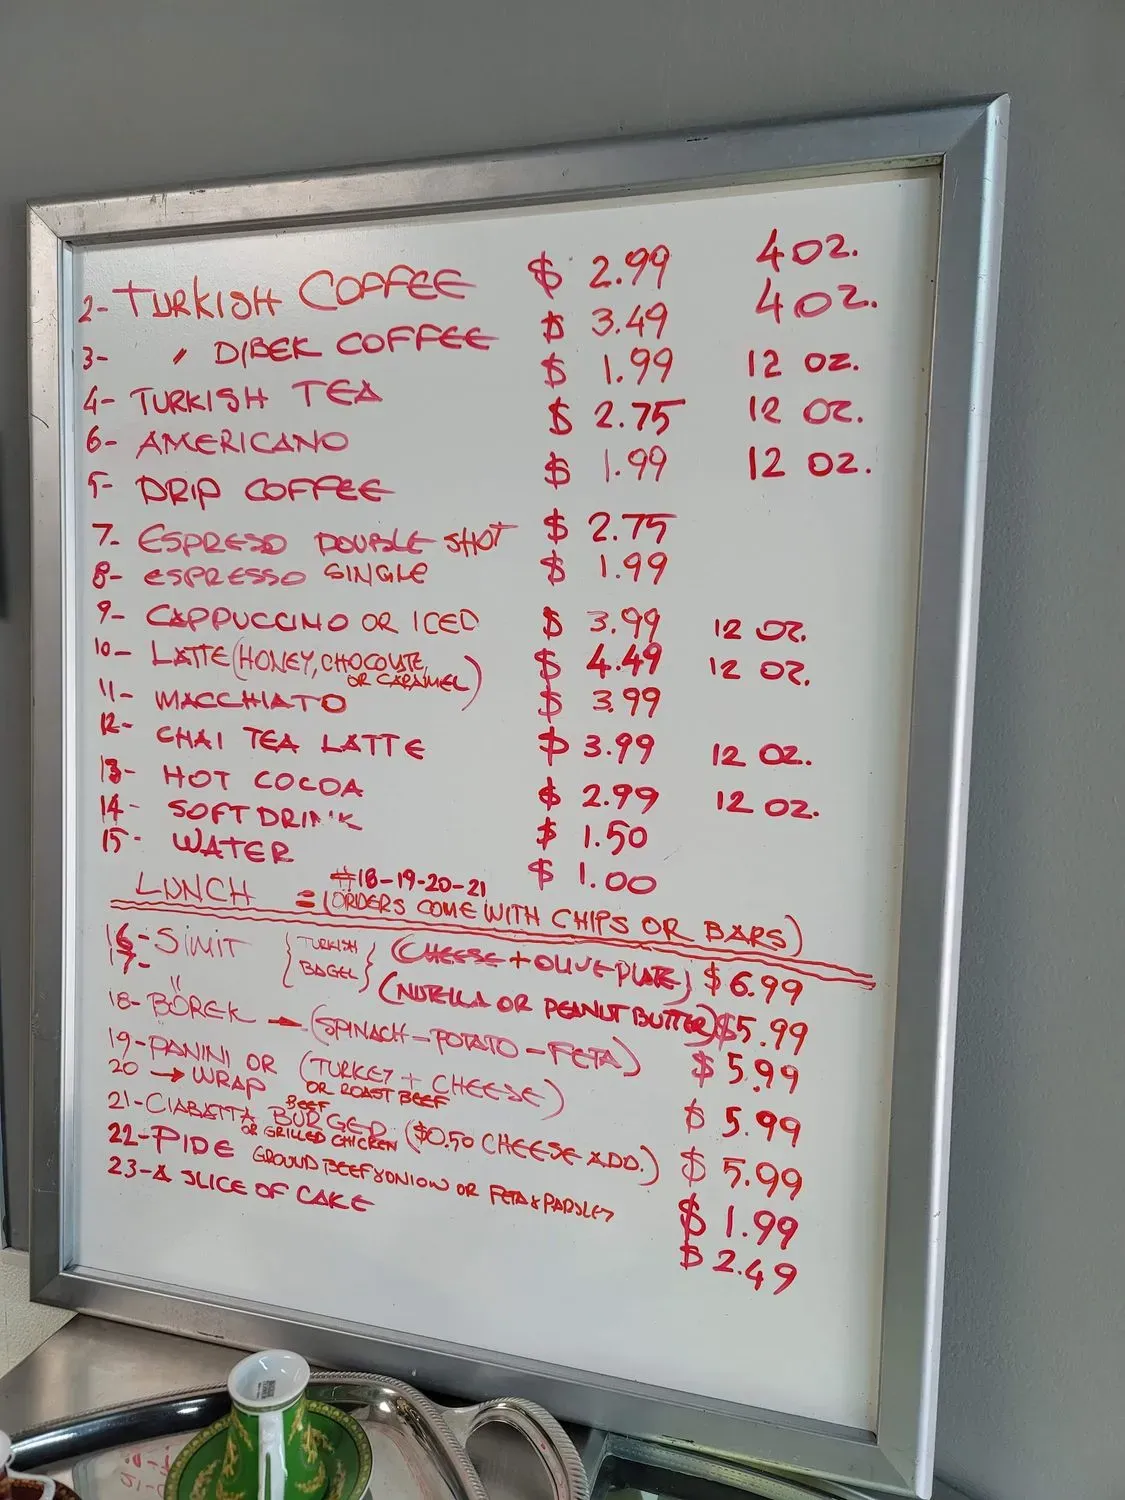 2- TURKISH COFFEE $ 2.99 4 OZ.
3- " DIBEK COFFEE $ 3.49 4 OZ.
4- TURKISH TEA $ 1.99 12 OZ.
6- AMERICANO $ 2.75 12 OZ.
5- DRIP COFFEE $ 1.99 12 OZ.
7- ESPRESO DOUBLE SHOT $ 2.75
8- ESPRESSO SINGLE $ 1.99
9- CAPPUCCINO OR ICED $ 3.99 12 OZ.
10- LATTE (HONEY, CHOCOLATE, OR CARAMEL) $ 4.49 12 OZ.
11- MACCHIATO $ 3.99
12- CHAI TEA LATTE $ 3.99 12 OZ.
13- HOT COCOA $ 2.99 12 OZ.
14- SOFT DRINK $ 1.50
15- WATER $ 1.00
#18-19-20-21
LUNCH = (ORDERS COME WITH CHIPS OR BARS)
16- SIMIT {TURKISH BAGEL} (CHEESE + OLIVE PLATE) $ 6.99
17- " (NUTELLA OR PEANUT BUTTER) $5.99
18- BÖREK → (SPINACH - POTATO - FETA) $ 5.99
19- PANINI OR (TURKEY + CHEESE) $ 5.99
20 → WRAP OR ROAST BEEF
21- CIABATTA BEEF BURGER ($0.50 CHEESE ADD.) $ 5.99
OR GRILLED CHICKEN
22- PIDE GROUND BEEF & ONION OR FETA & PARSLEY $ 1.99
23- A SLICE OF CAKE $ 2.49